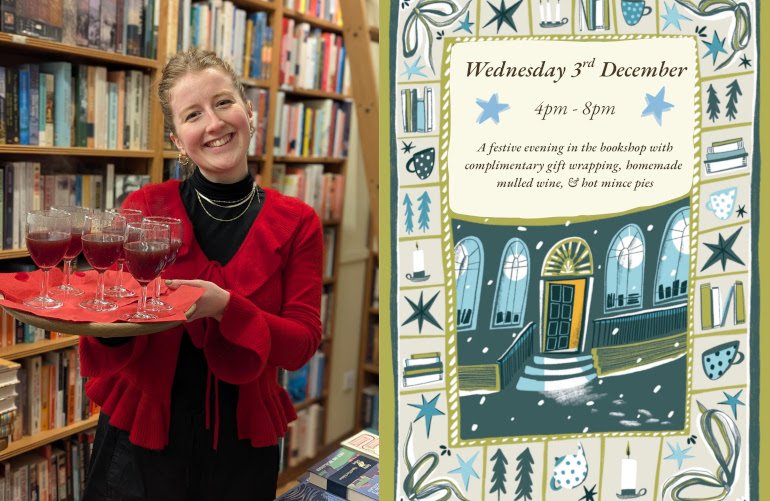 Wednesday 3rd December
4pm - 8pm
A festive evening in the bookshop with
complimentary gift wrapping, homemade
mulled wine, & hot mince pies